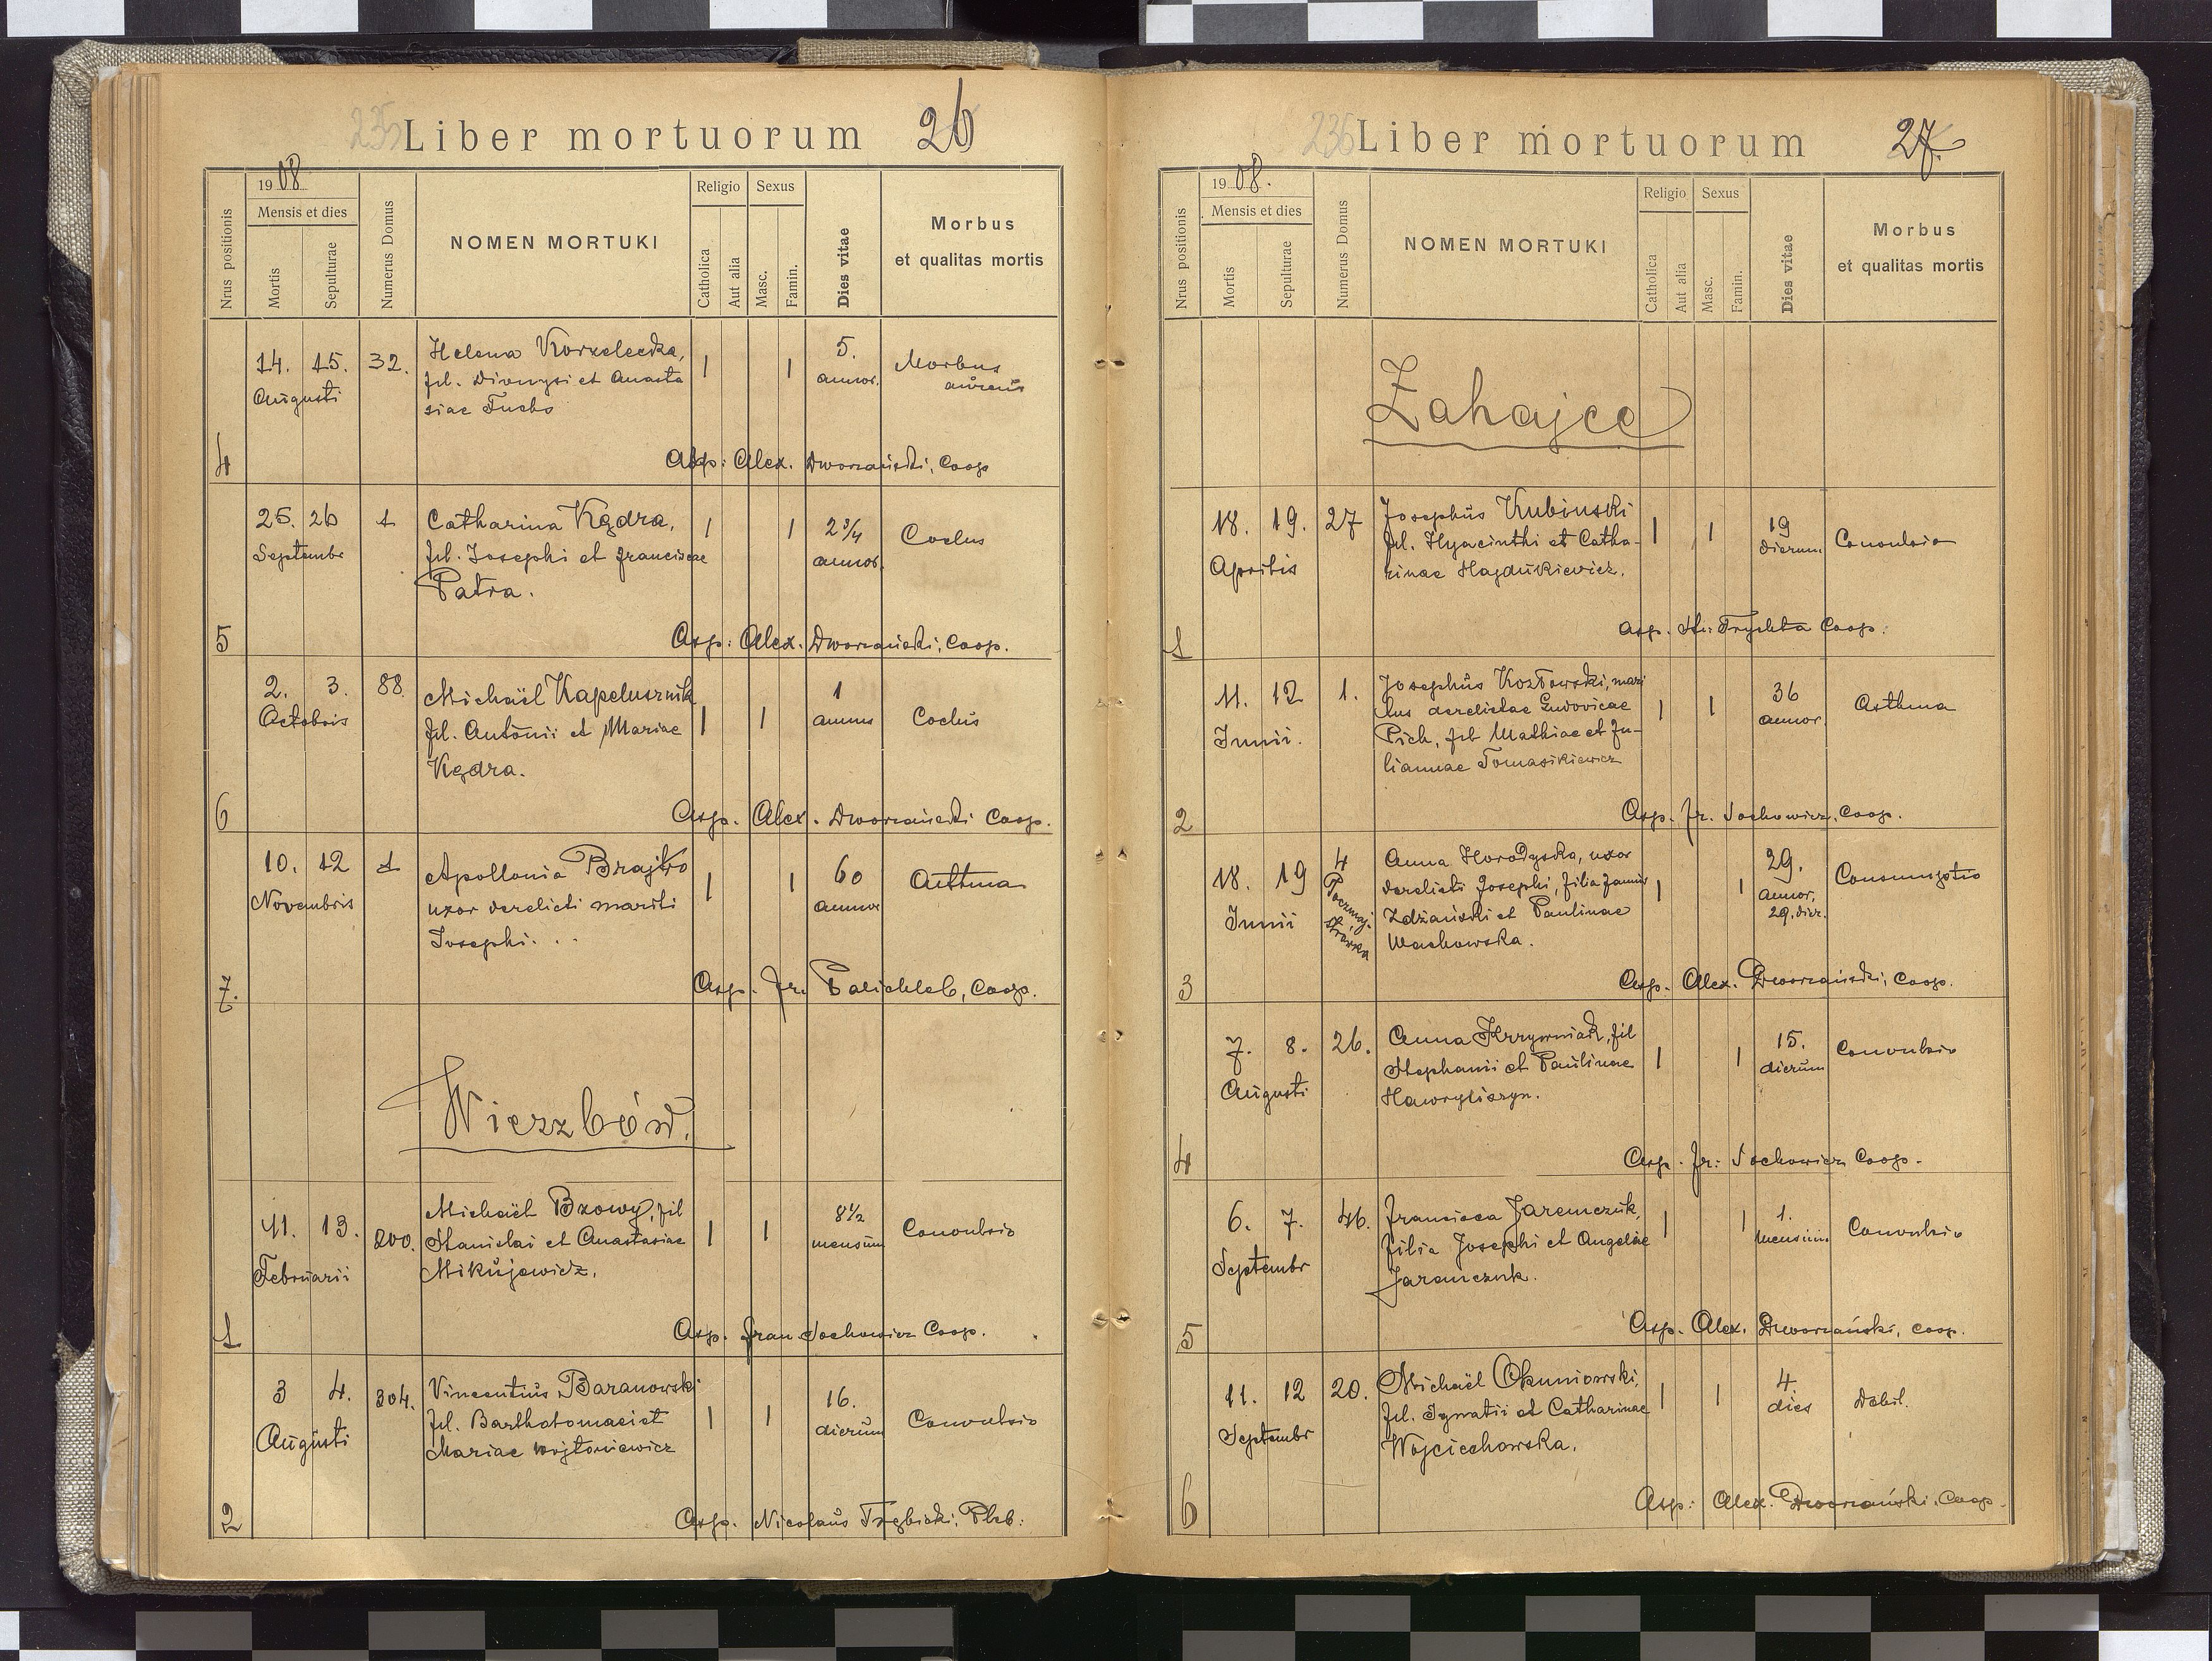 235 Liber mortuorum 26
1908
Mensis et dies
Nrus positionis
Mortis
Sepulturae
Numerus Domus
NOMEN MORTUKI
Religio
Catholica
Aut alia
Sexus
Masc.
Famin.
Dies vitae
Morbus
et qualitas mortis
14. 15. 32. Helena Korzelecka, 1 1 5. Morbus
Augusti fil. Dionysi et Anasta annor.
siae Fuchs
4 Asp: Alex. Dworzański, Coop
25. 26 1 Catharina Kędra, 1 1 2 3/4 Coclus
Septembr fil. Josephi et Franciscae annor.
Patra.
5 Asp: Alex. Dworzański, Coop.
2. 3. 88. Michaël Kapelusznik 1 1 1 Coclus
Octobris fil. Antonii et Mariae annus
Kędra.
6 Asp. Alex. Dworzański Coop.
10. 12 1 Apollonia Brajko 1 1 60 Asthma
Novembris uxor derelicti mariti annor
Josephi. . .
7. Asp. Fr. Coop.
Wierzbów.
11. 13. 200. Michaël Bzowy, fil 1 1 8 1/2 Convulsio
Februarii Stanislai et Anastasiae mensium
Mikujewicz.
1 Asp. Fran Sochowicz Coop.
3 4. 304. Vincentius Baranowski 1 1 16. Convulsio
Augusti fil. Bartholomaei et dierum
Mariae Wojtoniewicz
2 Asp. Nicolaus Trębicki, Pleb:
236 Liber mortuorum 27.
1908.
Mensis et dies
Nrus positionis
Mortis
Sepulturae
Numerus Domus
NOMEN MORTUKI
Religio
Catholica
Aut alia
Sexus
Masc.
Famin.
Dies vitae
Morbus
et qualitas mortis
Zahajce
18. 19. 27 Josephus Kubinski 1 1 19 Convulsio
Aprilis fil. Hyacinthi et Catha- dierum
rinae Hajdukiewicz.
1 Asp. Coop.
11. 12 1. Josephus Kozłowski, mari 1 1 36 Asthma
Junii. tus derelictae Ludovicae annor.
Pich, fil Mathiae et Ju-
liannae Tomasikiewicz
2 Asp. Fr. Sochowicz, Coop.
18. 19 4 Anna Horodyska, uxor 1 1 29. Consumptio
Junii derelicti Josephi, filia Joannis annor,
Zdżański et Paulinae 29, dier.
Wachowska.
3 Asp. Alex. Dworzański, Coop.
7. 8. 26. Anna Krzywniak, fil 1 1 15. Convulsio
Augusti Stephanii et Paulinae dierum
Hawryliszyn.
4 Asp. Fr: Sochowicz Coop.
6. 7. 46. Francisca Jaremczuk, 1 1 1. Convulsio
Septembr filia Josephi et Angelae
Jaremczuk.
5 Asp. Alex. Dworzański, Coop.
11. 12 20. Michaël Okuniowski, 1 1 4 Debil.
Septembr fil. Ignatii et Catharinae dies
Wojciechowska.
6 Asp: Alex. Dworzański, Coop.